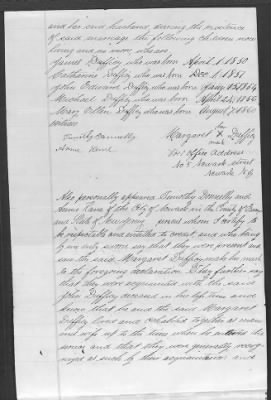 and her said husband, during the existence
of said marriage the following children now
living and no more, who are
James Duffey who was born April 1 1850
Catharine Duffey who was born Dec 1. 1851
John Edward Duffey who was born Jany 15 1854
Michael Duffey who was born April 23, 1856
Mary Ellen Duffey who was born August 7, 1860
Witness
Timothy Donnelly
Anna Kane
Margaret X Duffey
her
mark
Post Office Address
No 5 Newark street
Newark N.J.
Also personally appeared Timothy Donnelly and
Anna Kane of the City of Newark in the County of Essex
and State of New Jersey persons whom I certify to
be respectable and entitled to credit, and who being
by me duly sworn say that they were present and
saw the said Margaret Duffey make her mark
to the foregoing declaration. They further say
that they were acquainted with the said
John Duffey deceased in his life time and
know that he and the said Margaret
Duffey lived and cohabited together as man
and wife up to the time when he entered the
service and that they were generally recog-
nized as such by their acquaintances and